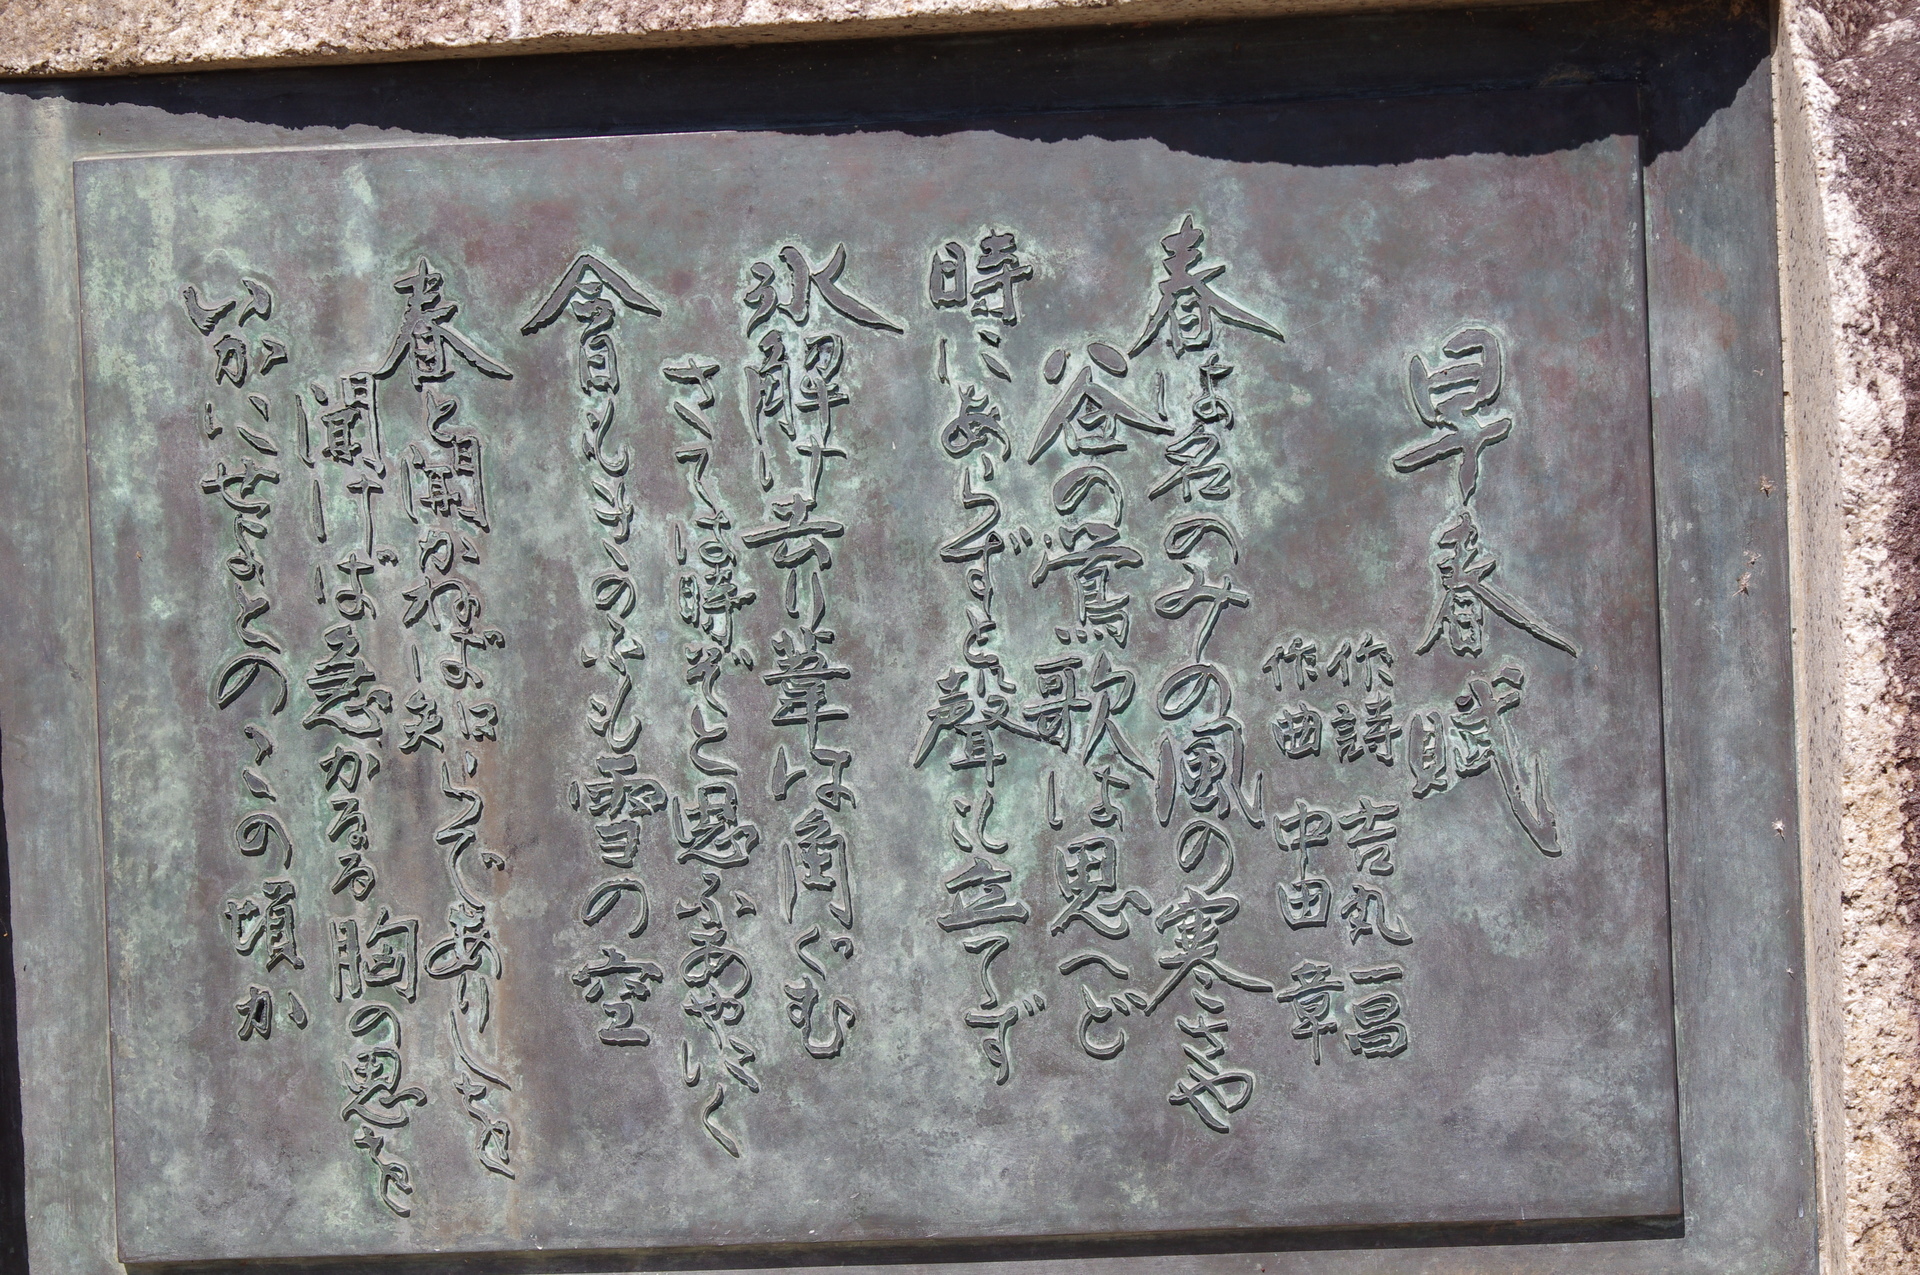 早春賦
作詩 吉丸一昌
作曲 中田 章
春は名のみの風の寒さや
谷の鶯歌は思へど
時にあらずと聲も立てず
氷解け去り葦は角ぐむ
さては時ぞと思ふあやにく
今日もきのふも雪の空
春と聞かねば知らでありしを
聞けば急かるる胸の思を
いかにせよとのこの頃か